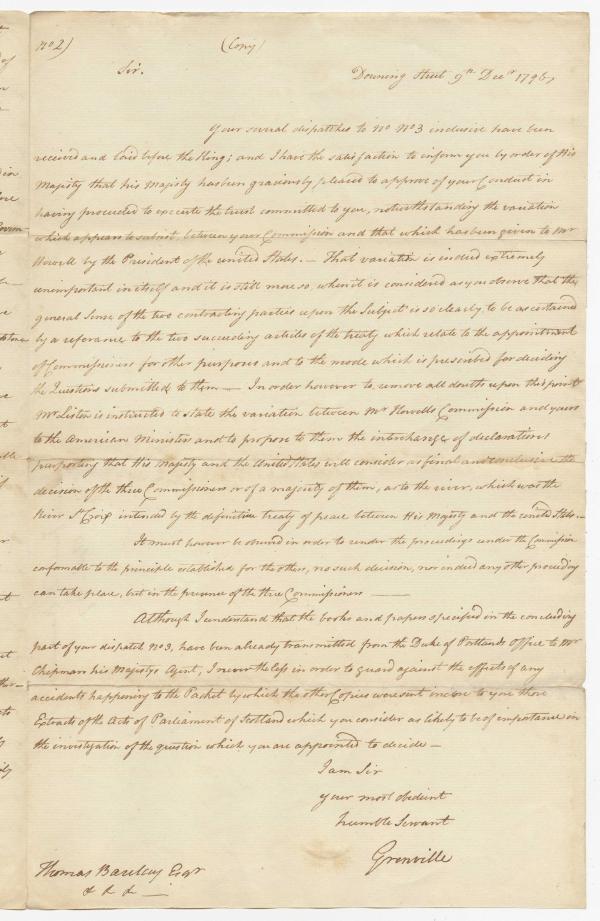 No 2)
(Copy)
Sir.
Downing Street 9th Decr 1796,
Your several dispatches to No No 3 inclusive have been
received and laid before the King; and I have the satisfaction to inform you by order of His
Majesty that his Majesty has been graciously pleased to approve of your Conduct in
having proceeded to execute the trust committed to you, notwithstanding the variation
which appears to subsist, between your Commission and that which has been given to Mr
Howell by the President of the united States. — That variation is indeed extremely
unimportant in itself and it is still more so, when it is considered as you observe that the
general Sense of the two contracting parties upon the Subject is so clearly to be ascertained
by a referance to the two succeeding articles of the treaty which relate to the appointment
of Commissioners for other purposes and to the mode which is prescribed for deciding
the Questions submitted to them — In order however to remove all doubts upon this point
Mr Liston is instructed to State the variation between Mr Howells Commission and yours
to the American Ministers and to propose to them the interchange of declarations
purporting that His Majesty and the United States will consider as final and conclusive the
decision of the three Commissioners or of a majority of them, as to the river, which was the
River St Croix intended by the definitive treaty of peace between His Majesty and the united States.—
It must however be observed in order to render the proceedings under the Commission
conformable to the principle established for the others, no such decision, nor indeed any other proceeding
can take place, but in the presence of the three Commissioners ———
Although I understand that the books and papers specified in the concluding
part of your dispatch No 3, have been already transmitted from the Duke of Portlands Office to Mr
Chipman his Majestys Agent, I never the less in order to guard against the effects of any
accidents happening to the Packet by which the other Copies were sent inclose to you those
Extracts of the Acts of Parliament of Scotland which you consider as likely to be of importance in
the investigation of the question which you are appointed to decide —
I am Sir
your most obedient
humble Servant
Grenville
Thomas Barclay Esqr
& & & —